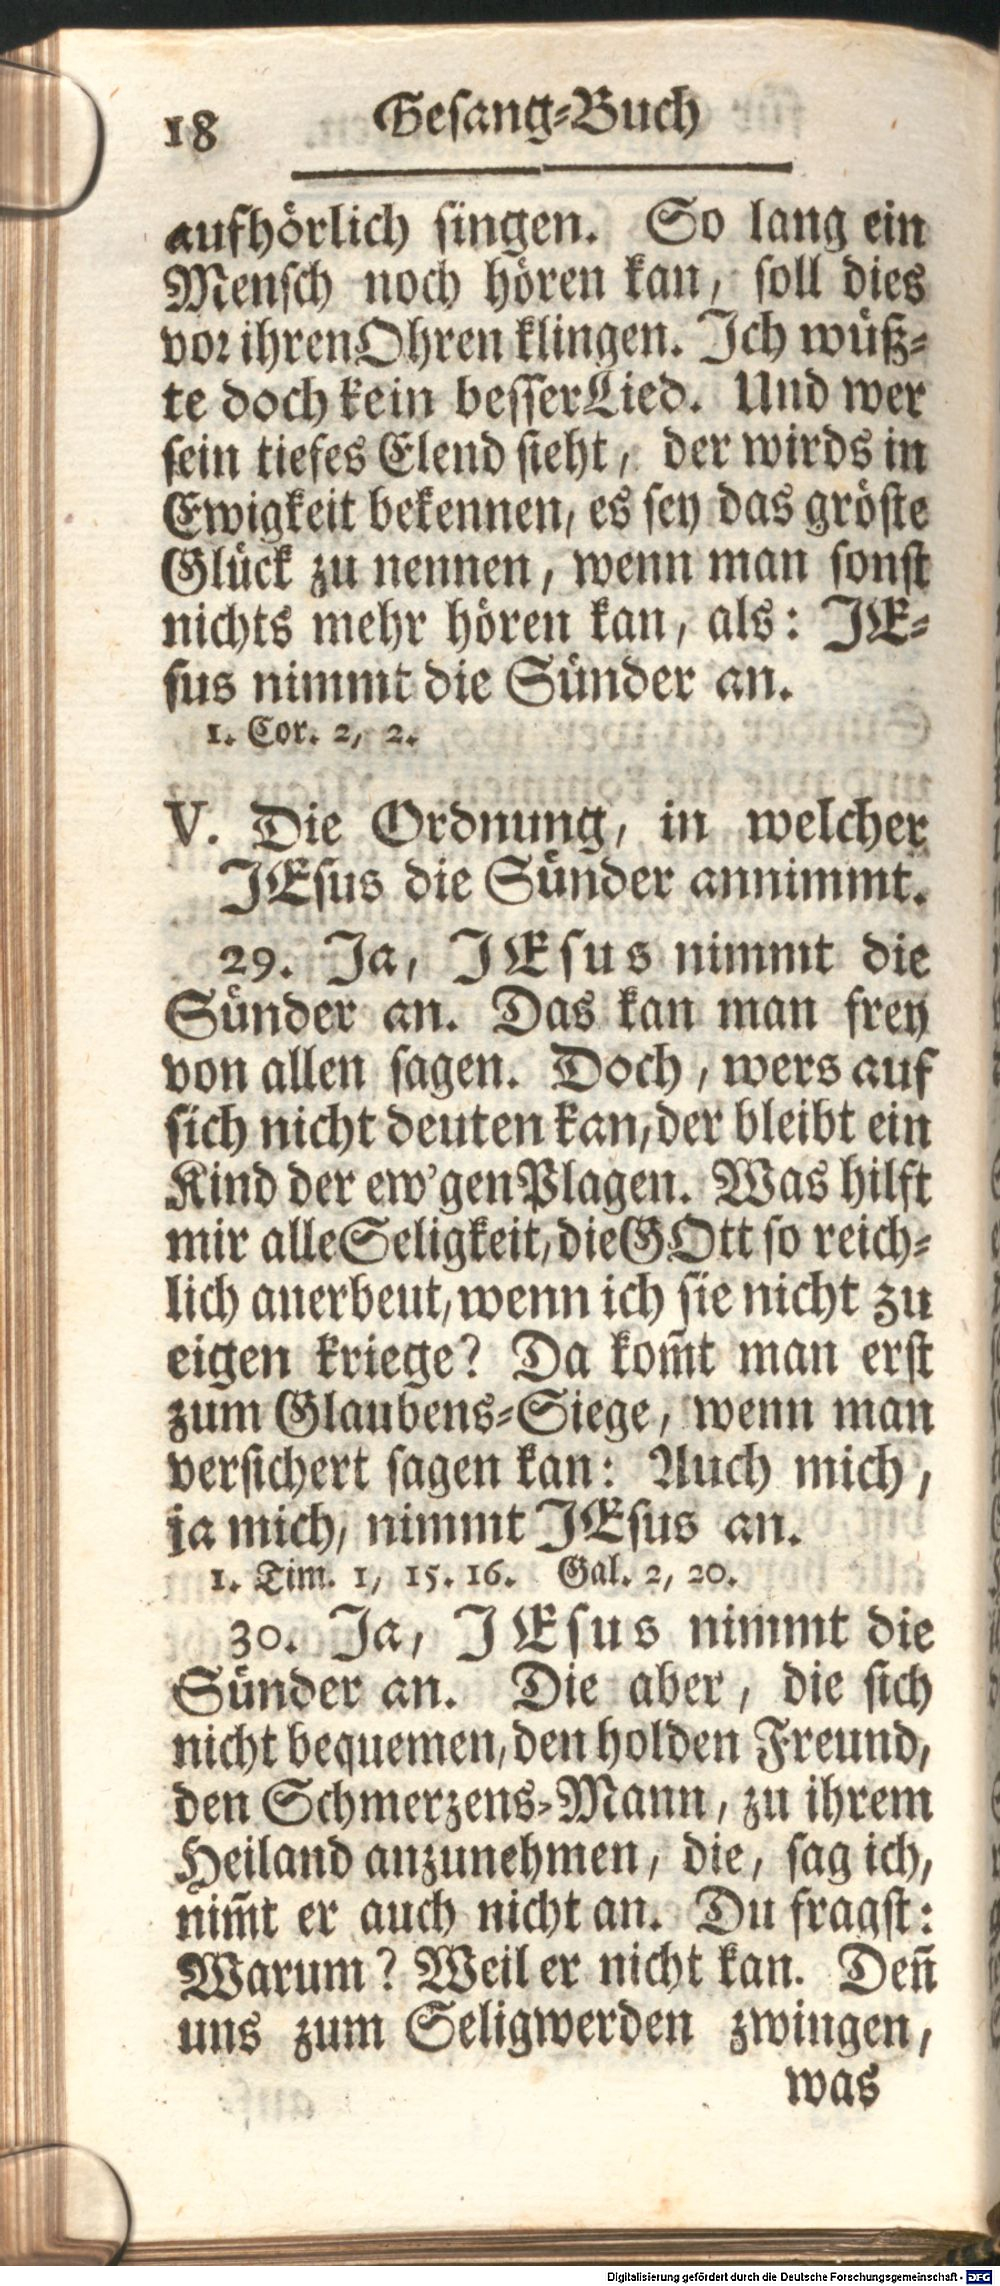 18 Gesang-Buch
aufhörlich singen. So lang ein
Mensch noch hören kan, soll dies
vor ihren Ohren klingen. Ich wüß-
te doch kein besser Lied. Und wer
sein tiefes Elend sieht, der wirds in
Ewigkeit bekennen, es sey das gröste
Glück zu nennen, wenn man sonst
nichts mehr hören kan, als: JE-
sus nimmt die Sünder an.
1. Cor. 2, 2.
V. Die Ordnung, in welcher
JEsus die Sünder annimmt.
29. Ja, JEsus nimmt die
Sünder an. Das kan man frey
von allen sagen. Doch, wers auf
sich nicht deuten kan, der bleibt ein
Kind der ew'gen Plagen. Was hilft
mir alle Seligkeit, die GOtt so reich-
lich anerbeut, wenn ich sie nicht zu
eigen kriege? Da kom̃t man erst
zum Glaubens-Siege, wenn man
versichert sagen kan: Auch mich,
ja mich, nimmt JEsus an.
1. Tim. 1, 15. 16. Gal. 2, 20.
30. Ja, JEsus nimmt die
Sünder an. Die aber, die sich
nicht bequemen, den holden Freund,
den Schmerzens-Mann, zu ihrem
Heiland anzunehmen, die, sag ich,
nim̃t er auch nicht an. Du fragst:
Warum? Weil er nicht kan. Deñ
uns zum Seligwerden zwingen,
was
Digitalisierung gefördert durch die Deutsche Forschungsgemeinschaft - DFG